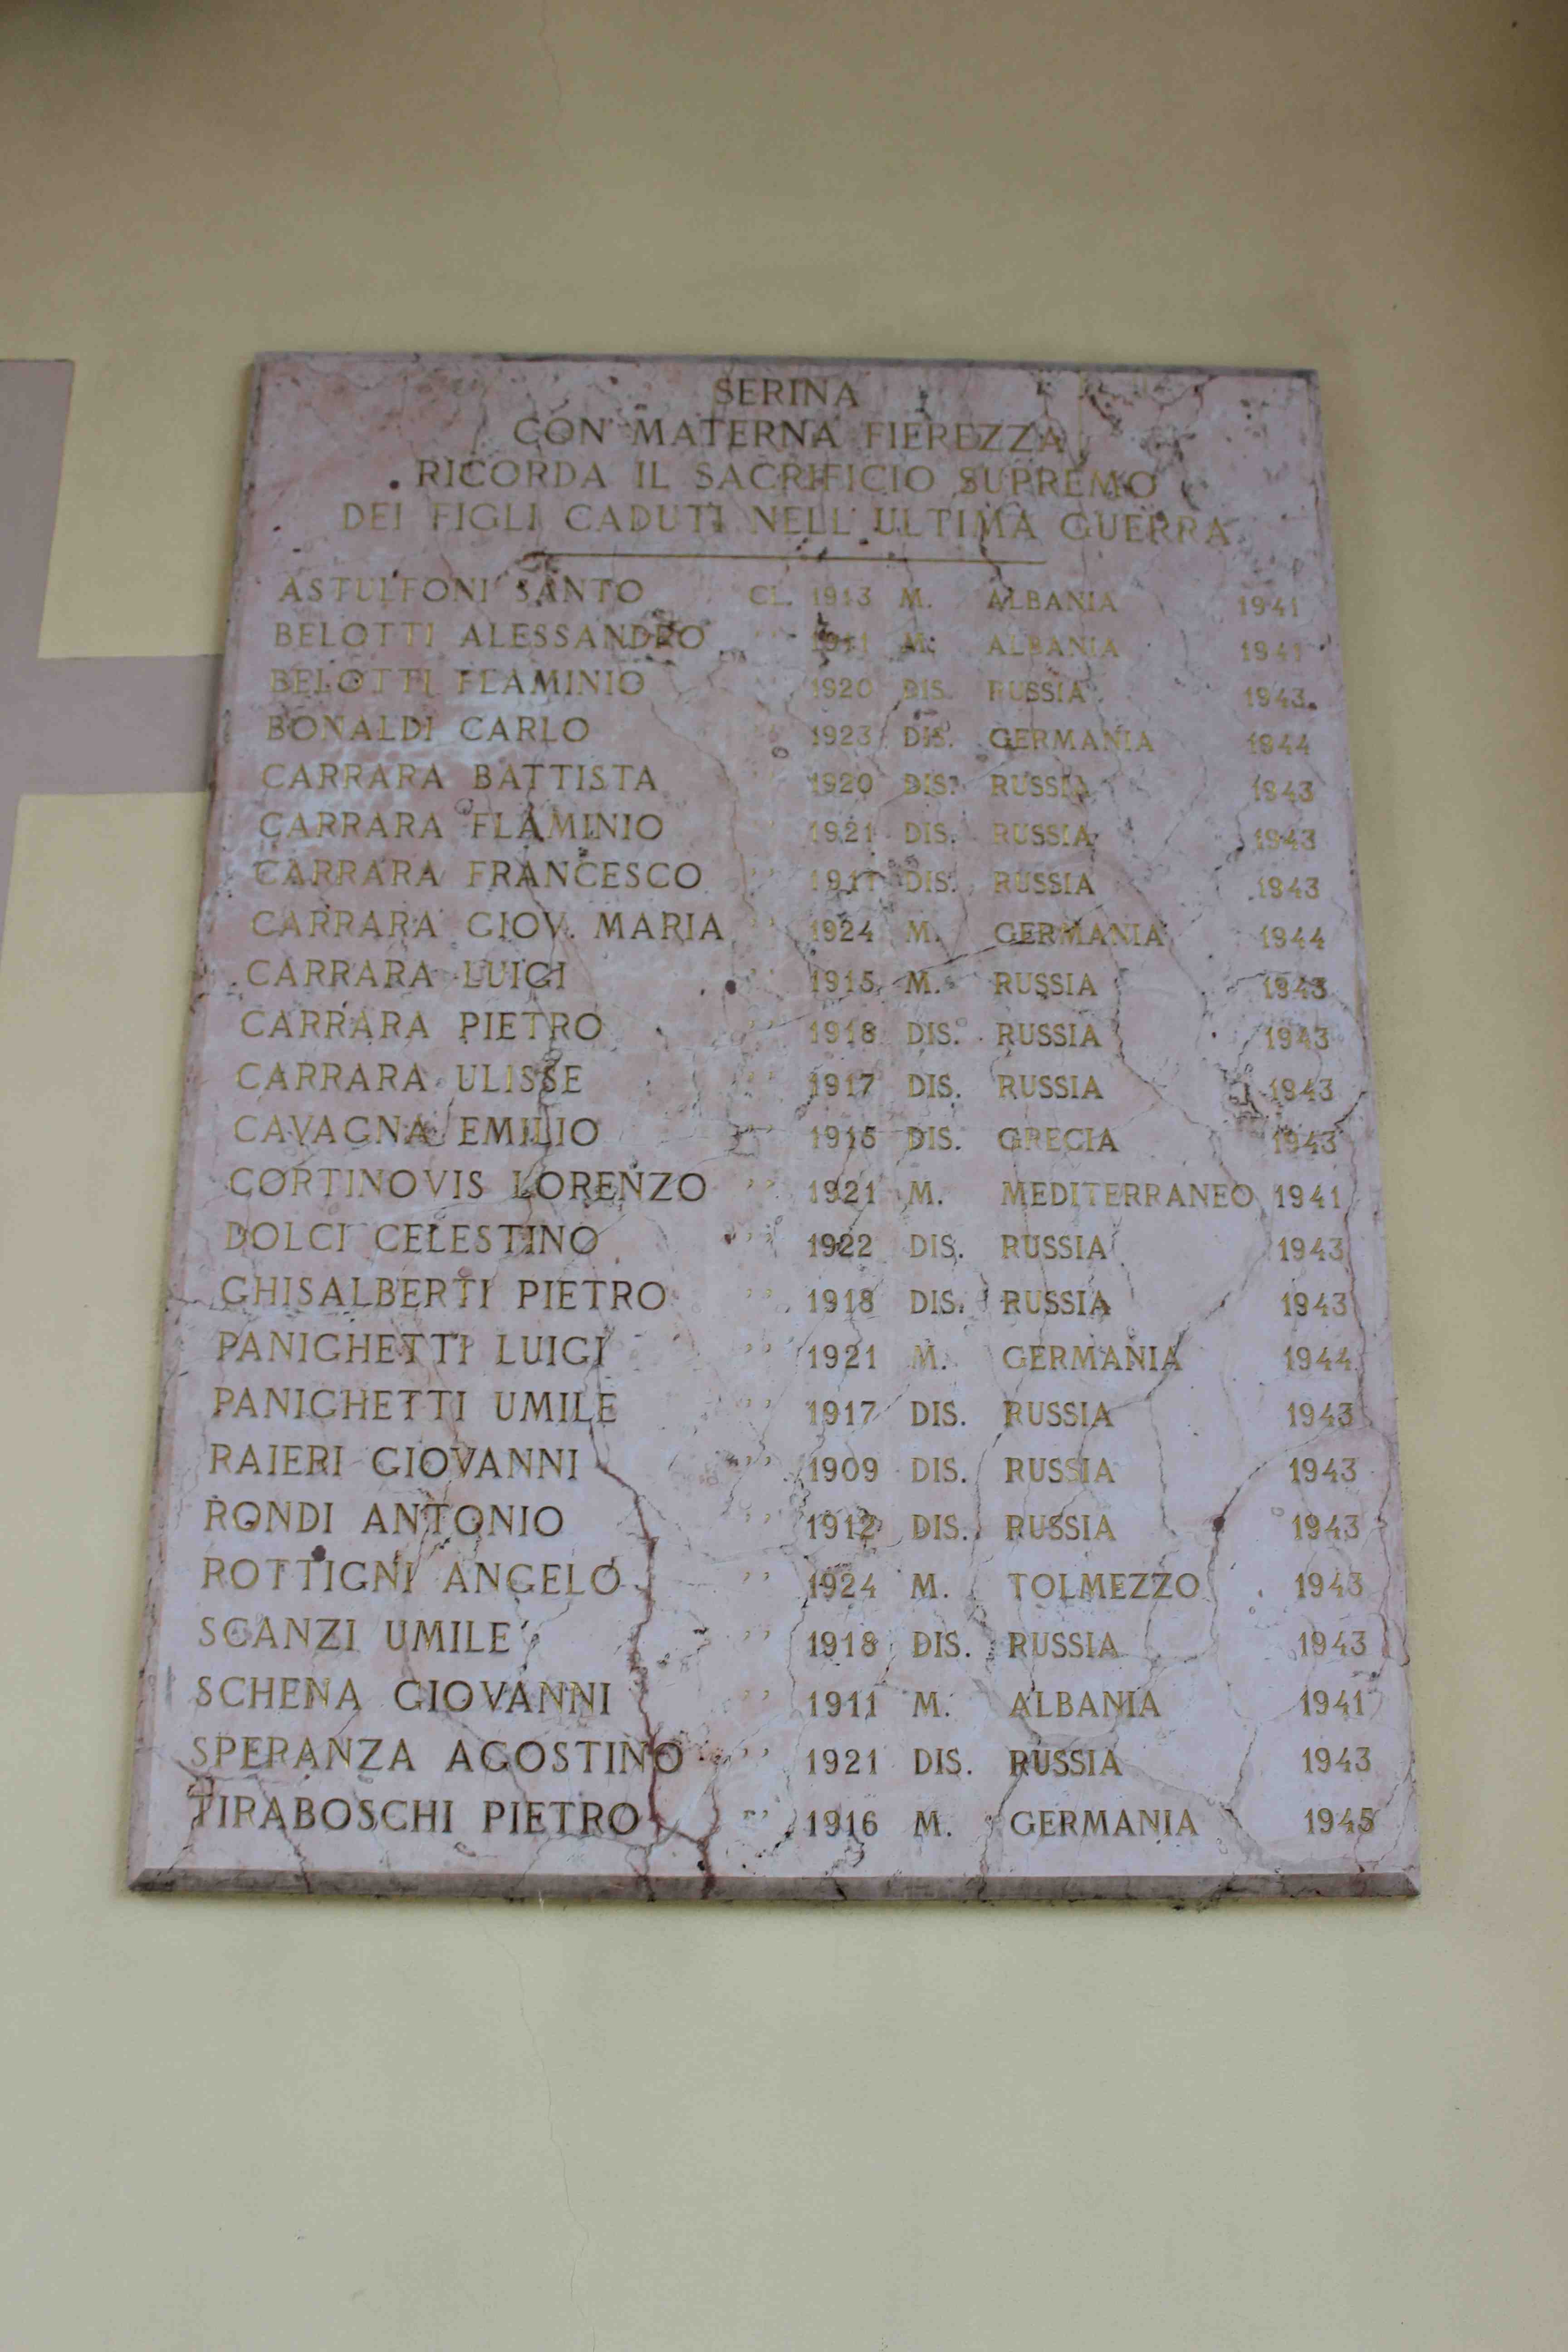 SERINA
CON MATERNA FIEREZZA
RICORDA IL SACRIFICIO SUPREMO
DEI FIGLI CADUTI NELL'ULTIMA GUERRA
ASTULFONI SANTO CL. 1913 M. ALBANIA 1941
BELOTTI ALESSANDRO '' 1911 M. ALBANIA 1941
BELOTTI FLAMINIO '' 1920 DIS. RUSSIA 1943
BONALDI CARLO '' 1923 DIS. GERMANIA 1944
CARRARA BATTISTA '' 1920 DIS. RUSSIA 1943
CARRARA FLAMINIO '' 1921 DIS. RUSSIA 1943
CARRARA FRANCESCO '' 1911 DIS. RUSSIA 1943
CARRARA GIOV. MARIA '' 1924 M. GERMANIA 1944
CARRARA LUIGI '' 1915 M. RUSSIA 1943
CARRARA PIETRO '' 1918 DIS. RUSSIA 1943
CARRARA ULISSE '' 1917 DIS. RUSSIA 1943
CAVAGNA EMILIO '' 1915 DIS. GRECIA 1943
CORTINOVIS LORENZO '' 1921 M. MEDITERRANEO 1941
DOLCI CELESTINO '' 1922 DIS. RUSSIA 1943
GHISALBERTI PIETRO '' 1918 DIS. RUSSIA 1943
PANIGHETTI LUIGI '' 1921 M. GERMANIA 1944
PANIGHETTI UMILE '' 1917 DIS. RUSSIA 1943
RAIERI GIOVANNI '' 1909 DIS. RUSSIA 1943
RONDI ANTONIO '' 1912 DIS. RUSSIA 1943
ROTTIGNI ANGELO '' 1924 M. TOLMEZZO 1943
SCANZI UMILE '' 1918 DIS. RUSSIA 1943
SCHENA GIOVANNI '' 1911 M. ALBANIA 1941
SPERANZA AGOSTINO '' 1921 DIS. RUSSIA 1943
TIRABOSCHI PIETRO '' 1916 M. GERMANIA 1945